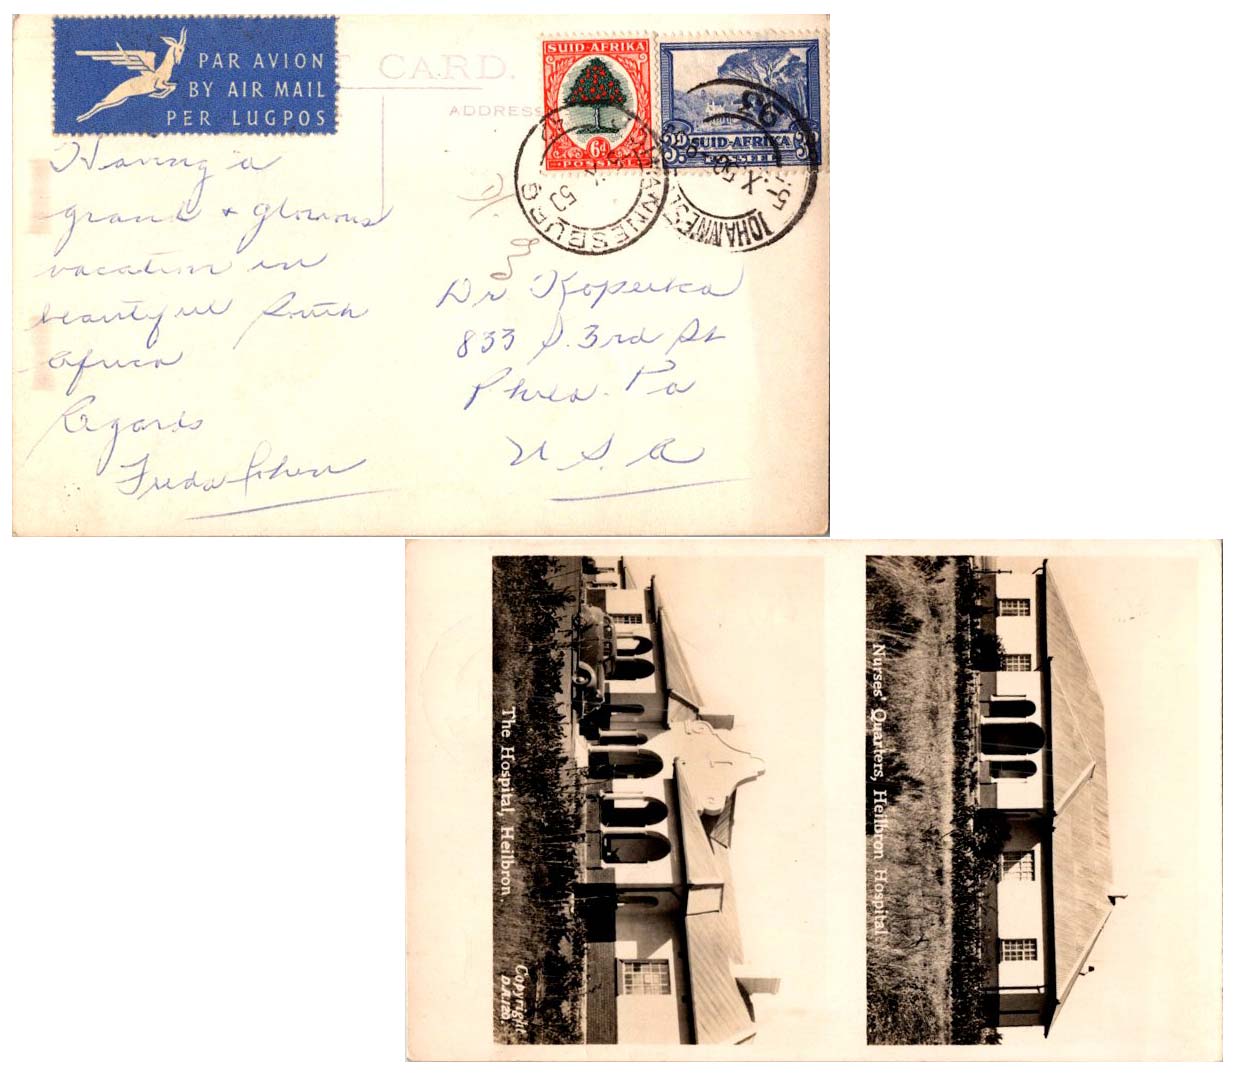 PAR AVION
BY AIR MAIL
PER LUGPOS
T CARD.
ADDRESS
SUID-AFRIKA
6d
POSSEËL
SUID-AFRIKA
3d 3d
JOHANNESBURG
X 50
JOHANNESB
X 50
Having a
grand & glorious
vacation in
beautiful South
Africa
Regards
Freda Cohen
Dr Koperka
833 S. 3rd St
Phila. Pa
U S. A
The Hospital, Heilbron.
Copyright
Nurses' Quarters, Heilbron Hospital.